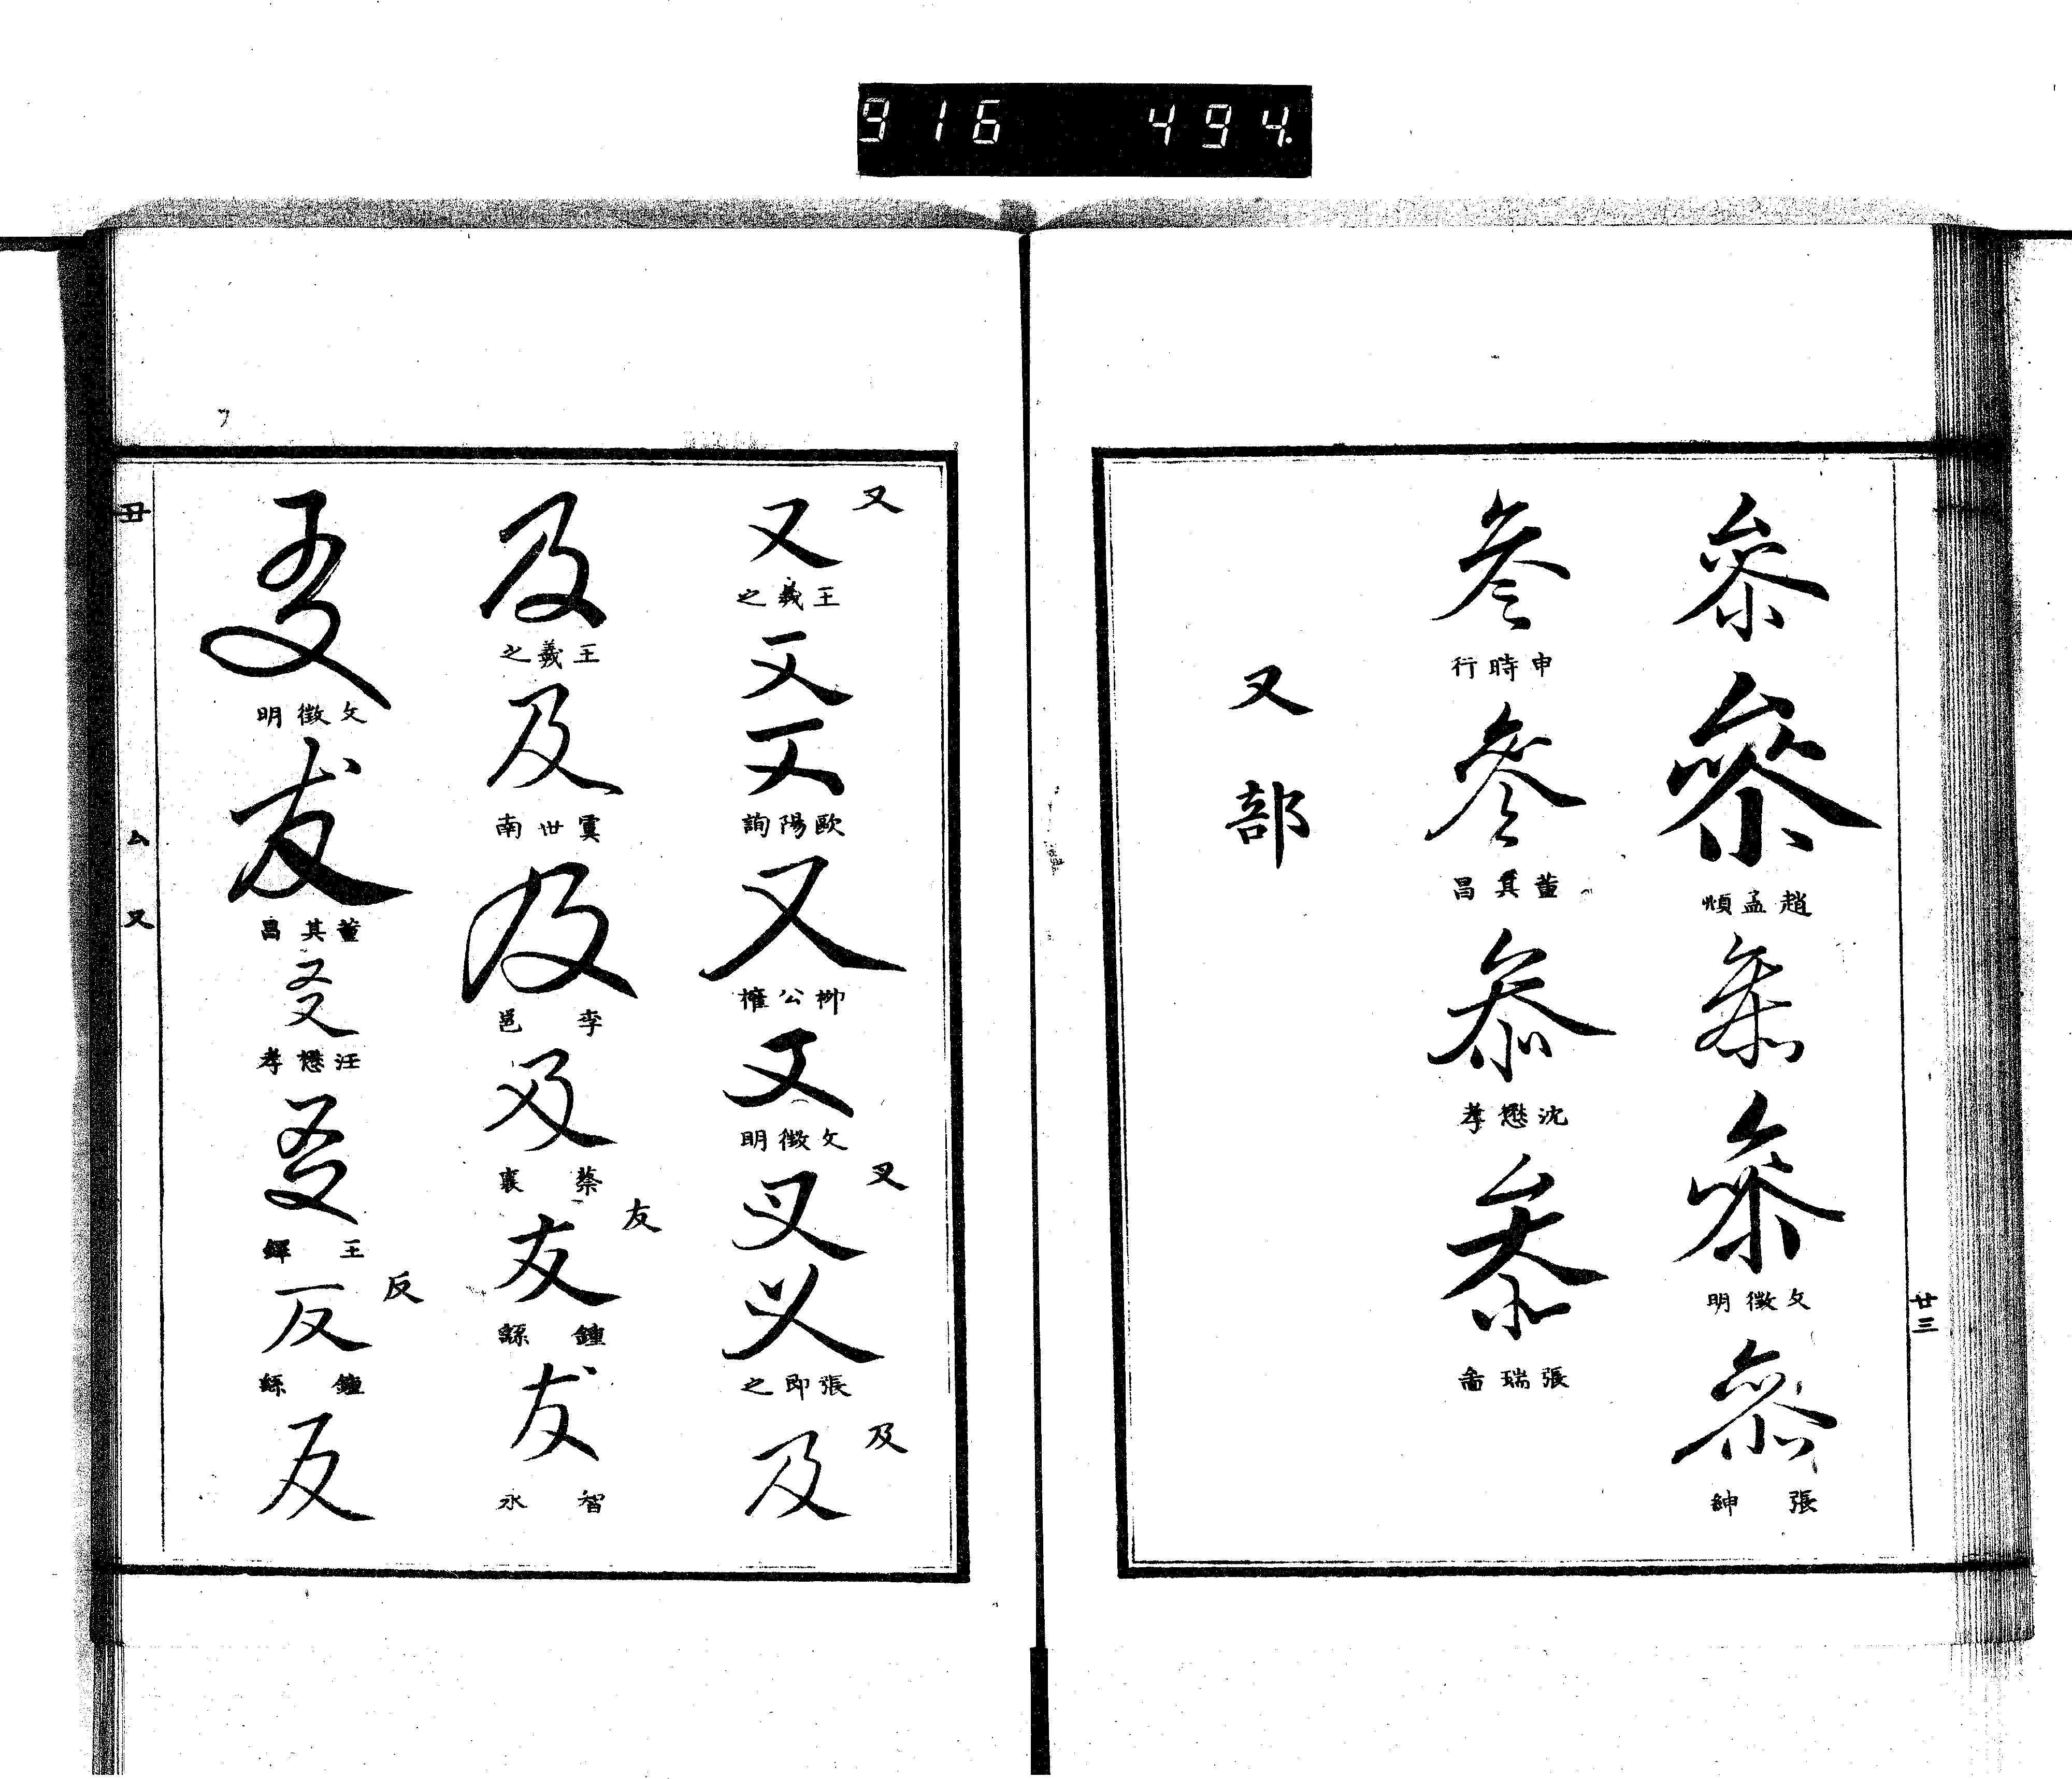 916 494.
參
參
趙孟頫
參
參
文徵明
參
張紳
參
申時行
參
董其昌
參
沈懋孝
參
張瑞圖
又部
廿三
又
又
王羲之
又
又
歐陽詢
又
柳公權
又
文徵明
叉
叉
叉
張即之
及
及
及
王羲之
及
虞世南
及
李邕
及
蔡襄
友
友
鍾繇
友
智永
友
文徵明
友
董其昌
友
汪懋孝
友
王鐸
反
反
鍾繇
反
丑
厶又